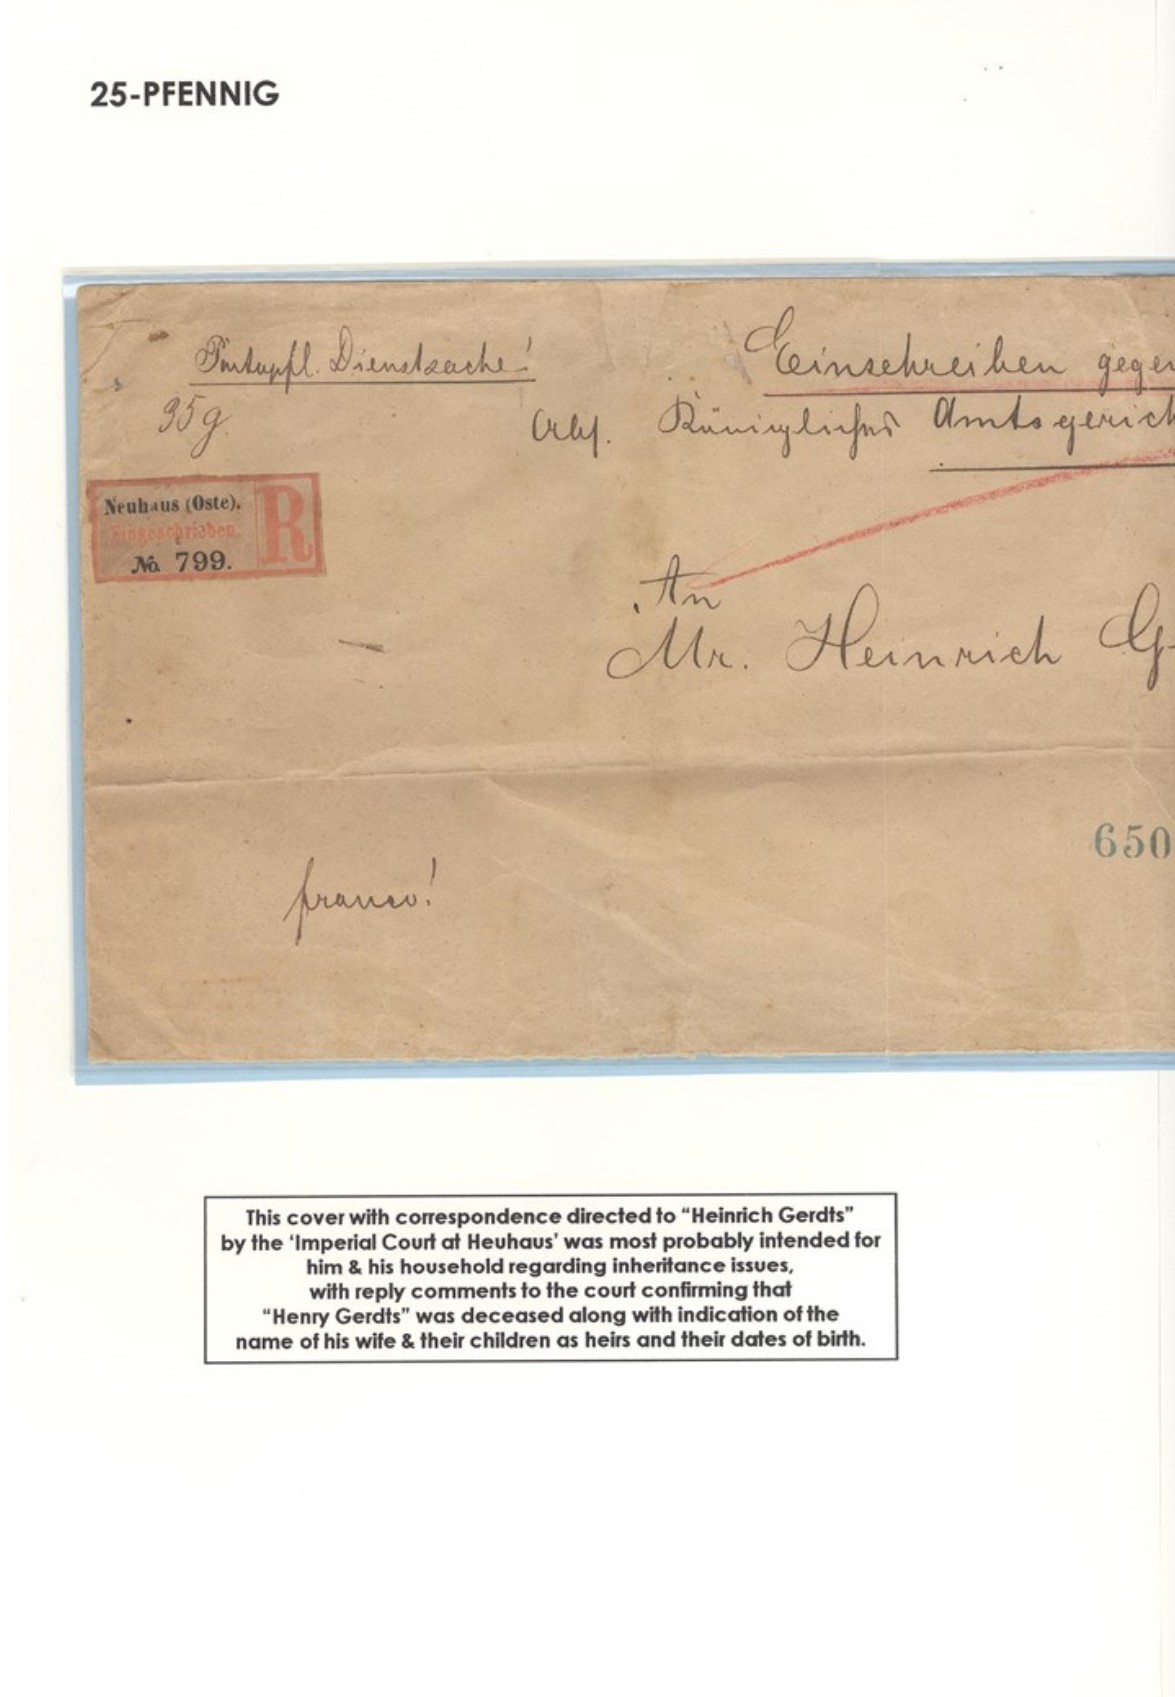 25-PFENNIG
Portopfl. Dienstsache!
Einschreiben gegen
35g.
Abs. Königliches Amtsgerich
Neuhaus (Oste).
Eingeschrieben.
R
No 799.
An
Mr. Heinrich G
650
franco!
This cover with correspondence directed to “Heinrich Gerdts”
by the ‘Imperial Court at Heuhaus’ was most probably intended for
him & his household regarding inheritance issues,
with reply comments to the court confirming that
“Henry Gerdts” was deceased along with indication of the
name of his wife & their children as heirs and their dates of birth.